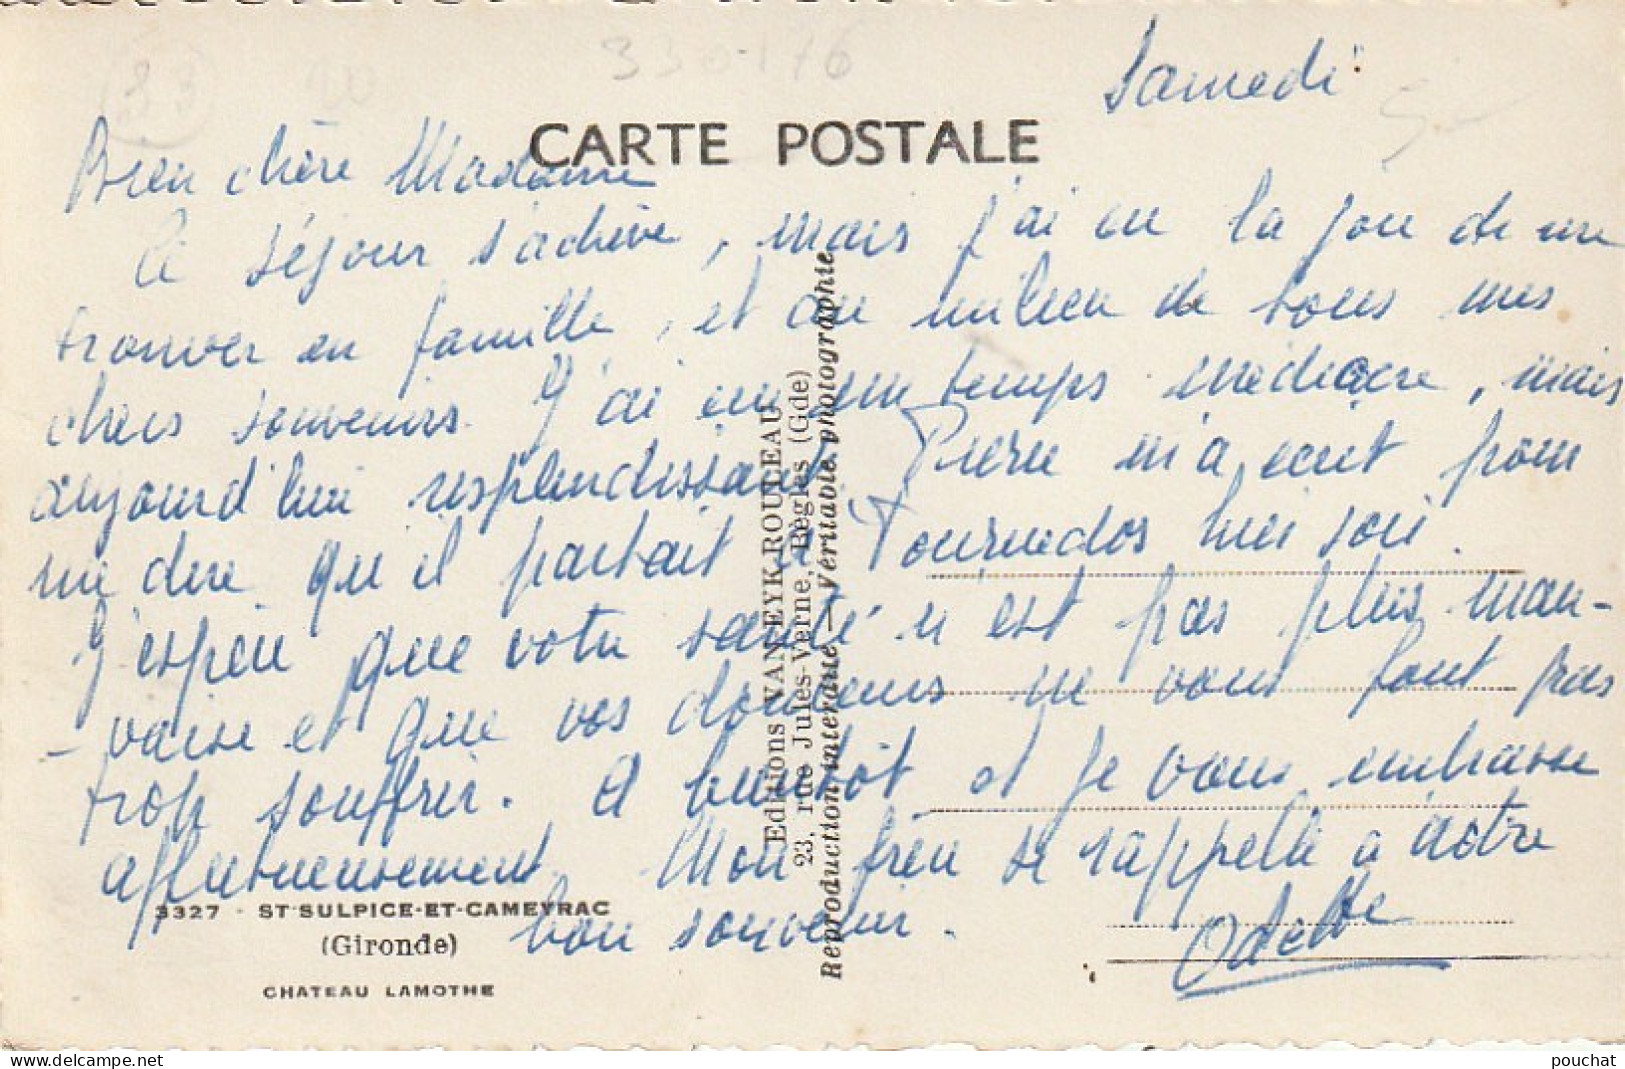 330-176
Samedi
CARTE POSTALE
Bien chère Madame
le séjour s'achève, mais j'ai eu la joie de me
trouver en famille, et au milieu de tous mes
chers souvenirs. J'ai eu un temps médiocre, mais
aujourd'hui resplendissant. Pierre m'a écrit pour
me dire qu'il partait à Tournedos hier soir.
J'espère que votre santé n'est pas plus mau-
-vaise et que vos douleurs ne vous font pas
trop souffrir. A bientôt et je vous embrasse
affectueusement. Mon frère se rappelle à votre
bon souvenir.
Odette
3327 - ST-SULPICE-ET-CAMEYRAC
(Gironde)
CHATEAU LAMOTHE
Editions VAN EYK ROULEAU
23, rue Jules-Verne, Bègles (Gde)
Reproduction interdite — Véritable photographie
delcampe.net
pouchat